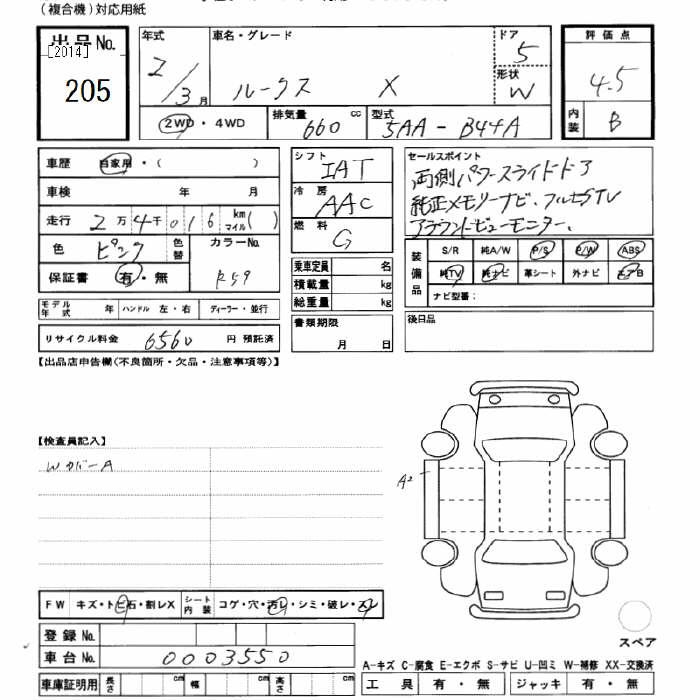 (複合機)対応用紙
出品No.
[2014]
205
年式
2/3月
車名・グレード
ルークス X
ドア
5
形状
W
評価点
4.5
内装
B
2WD・4WD
排気量
660 cc
型式
5AA-B44A
車歴 自家用・( )
車検 年 月
走行 2万4千016 km マイル( )
色 ピンク 色替
カラーNo.
保証書 有・無
シフト
IAT
冷房
AAC
燃料
G
乗車定員 名
積載量 kg
総重量 kg
セールスポイント
両側パワースライドドア
純正メモリーナビ、フルセグTV
アラウンドビューモニター、
装備品
S/R 純A/W P/S P/W ABS
純TV 純ナビ 革シート 外ナビ エアB
ナビ型番:
モデル年式 年 ハンドル 左・右 ディーラー・並行
書類期限
月 日
後日品
リサイクル料金 6560 円 預託済
【出品店申告欄(不良箇所・欠品・注意事項等)】
【検査員記入】
WカバーA
A2
FW キズ・トビ石・割レX シート内装 コゲ・穴・汚レ・シミ・破レ・スレ
スペア
登録No.
車台No. 0003550
A-キズ C-腐食 E-エクボ S-サビ U-凹ミ W-補修 XX-交換済
車庫証明用 長さ cm 幅 cm 高さ cm
工具 有・無 ジャッキ 有・無